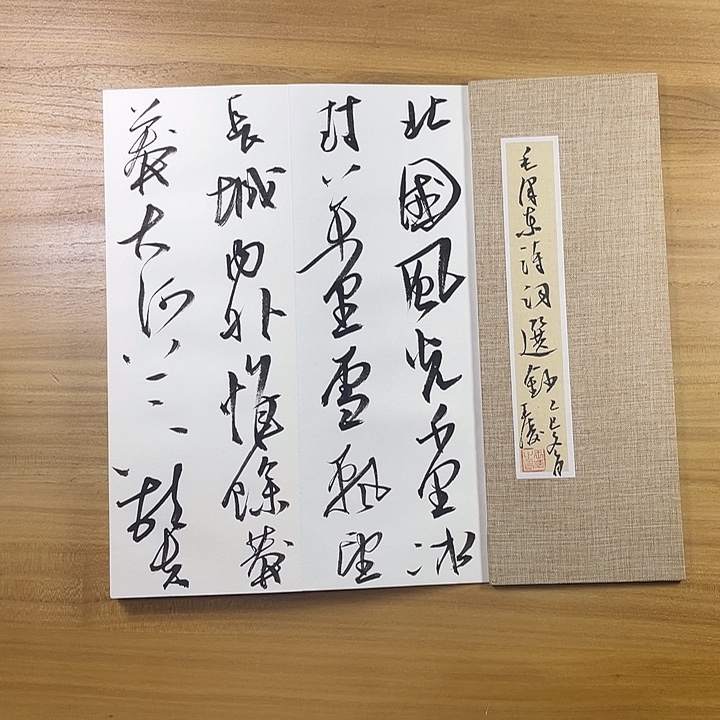 毛澤東詩詞選鈔
乙巳冬月
北國風光千里冰
封萬里雪飄望
長城内外惟餘莽
莽大河上下頓失